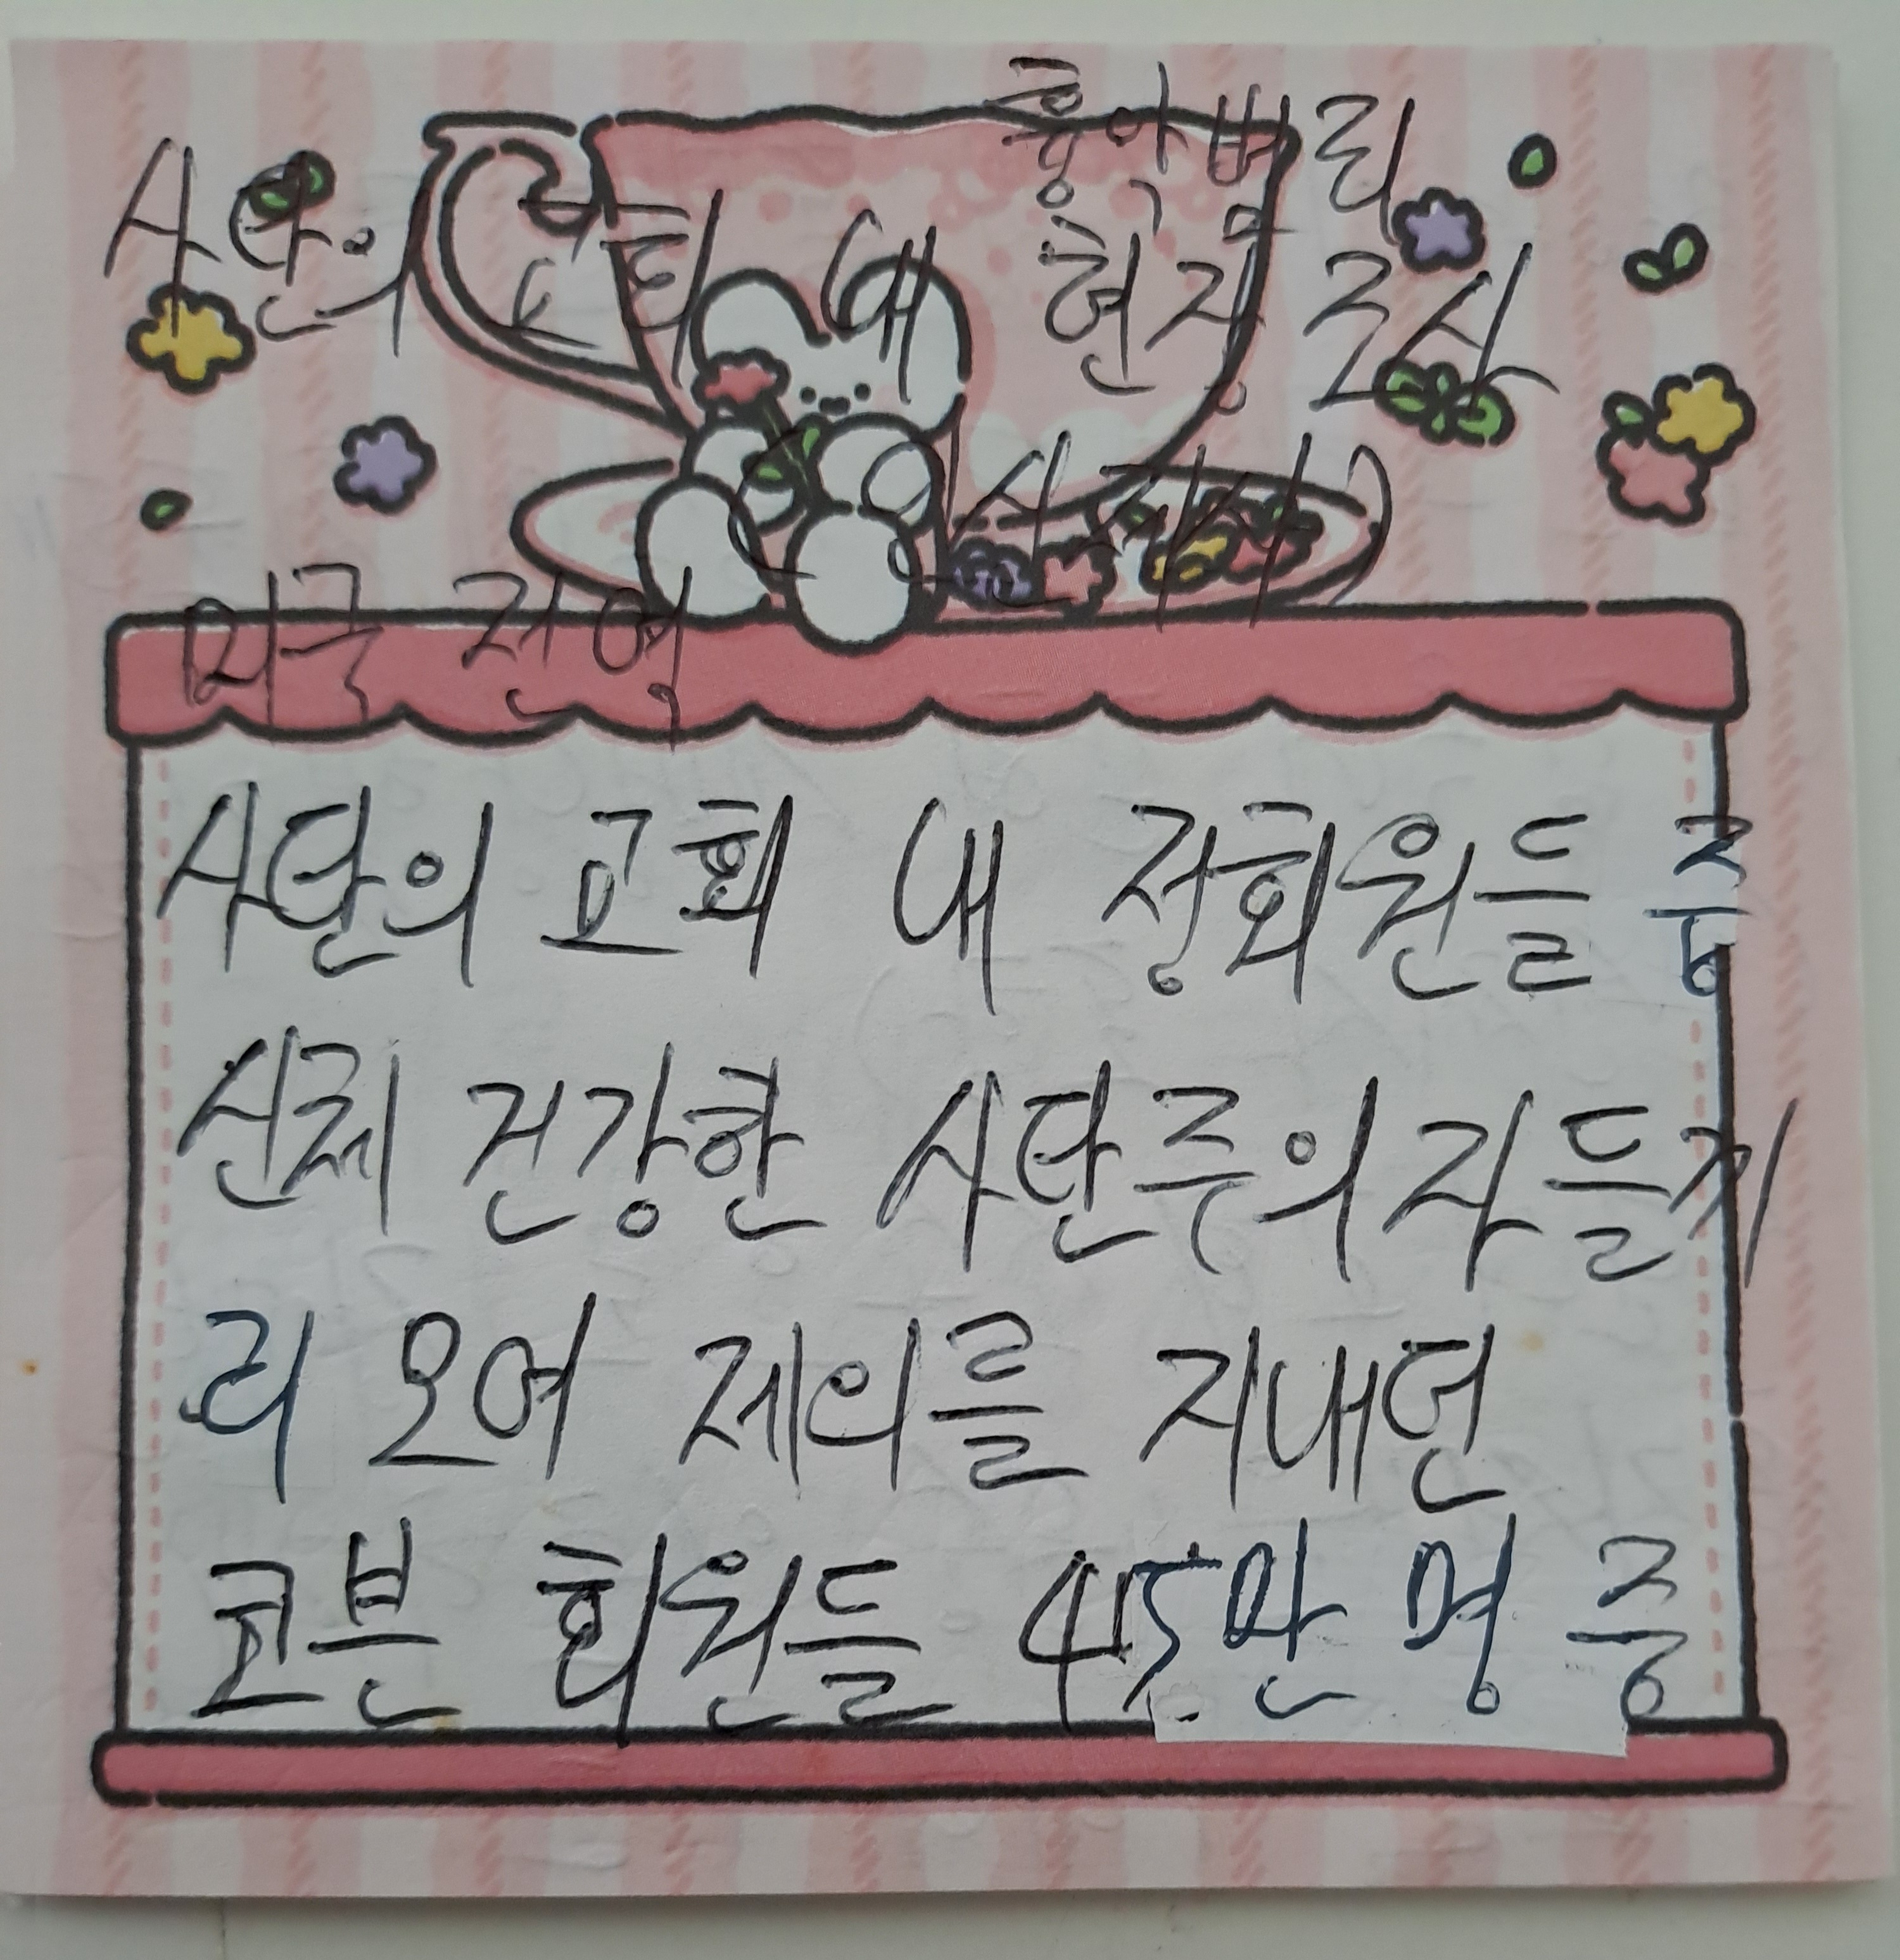 흉아버리
사단의 교회 내 현장 급사
인사 지시)
미국 전역
사단의 교회 내 정회원들 중
신체 건강한 사단주의자들끼
리 모여 제의를 지내던
코븐 회원들 45만 명 중